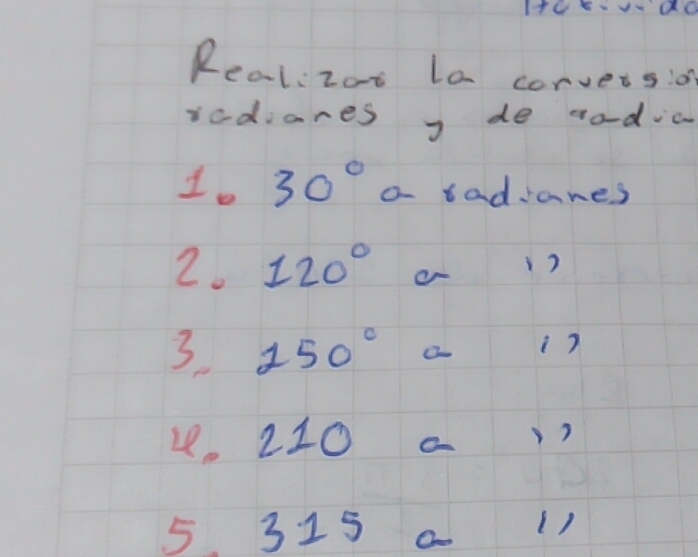 Realizar la conversión
radianes y de radia
1. 30° a radianes
2. 120° a ''
3. 150° a ''
4. 210 a ''
5. 315 a ''